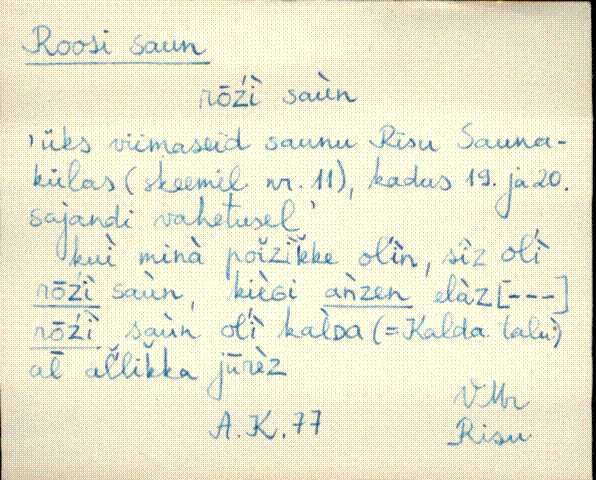 Roosi saun
rōźì saùn
'üks viimaseid saunu Risu Sauna-
külas (skeemil nr. 11), kadus 19. ja 20.
sajandi vahetusel'
kuì minà poĭzĭkke olìn, sìz olì
rōźì saùn, kièGi anzen elàz [---]
rōźì saùn olì kalDa (=Kalda talu)
al allikka jūrèz
VMr
A.K.77 Risu